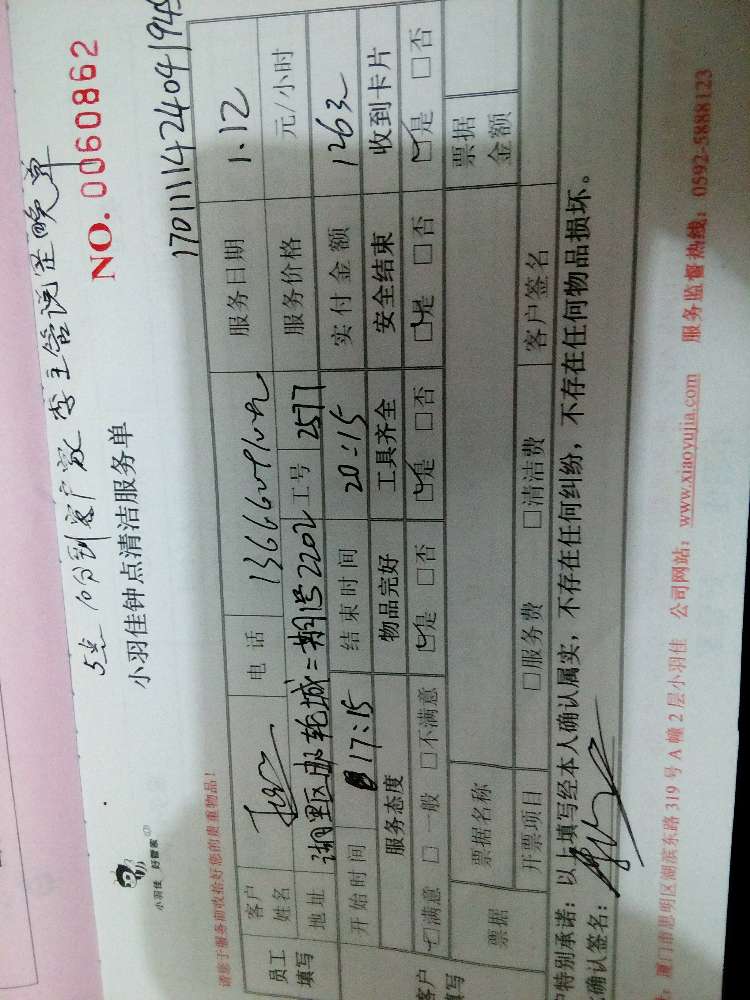 5点10分到客户家 李主管说是晚单
小羽佳钟点清洁服务单
NO. 0060862
小羽佳 好管家
请您于服务前收拾好您的贵重物品!
1701111424041945
员工填写
客户姓名
电话
服务日期 1.12
地址 湖里区邮轮城二期1号2202 工号 2577 服务价格 元/小时
开始时间 17:15 结束时间 20:15 实付金额 126元
客户填写
服务态度 物品完好 工具齐全 安全结束 收到卡片
☑满意 □一般 □不满意 ☑是 □否 ☑是 □否 ☑是 □否 ☑是 □否
票据
票据名称 票据金额
开票项目 □服务费 □清洁费 客户签名
户特别承诺:以上填写经本人确认属实,不存在任何纠纷,不存在任何物品损坏。
确认签名:
厦门市思明区湖滨东路 319 号 A 幢 2 层小羽佳 公司网站:www.xiaoyujia.com 服务监督热线:0592-5888123